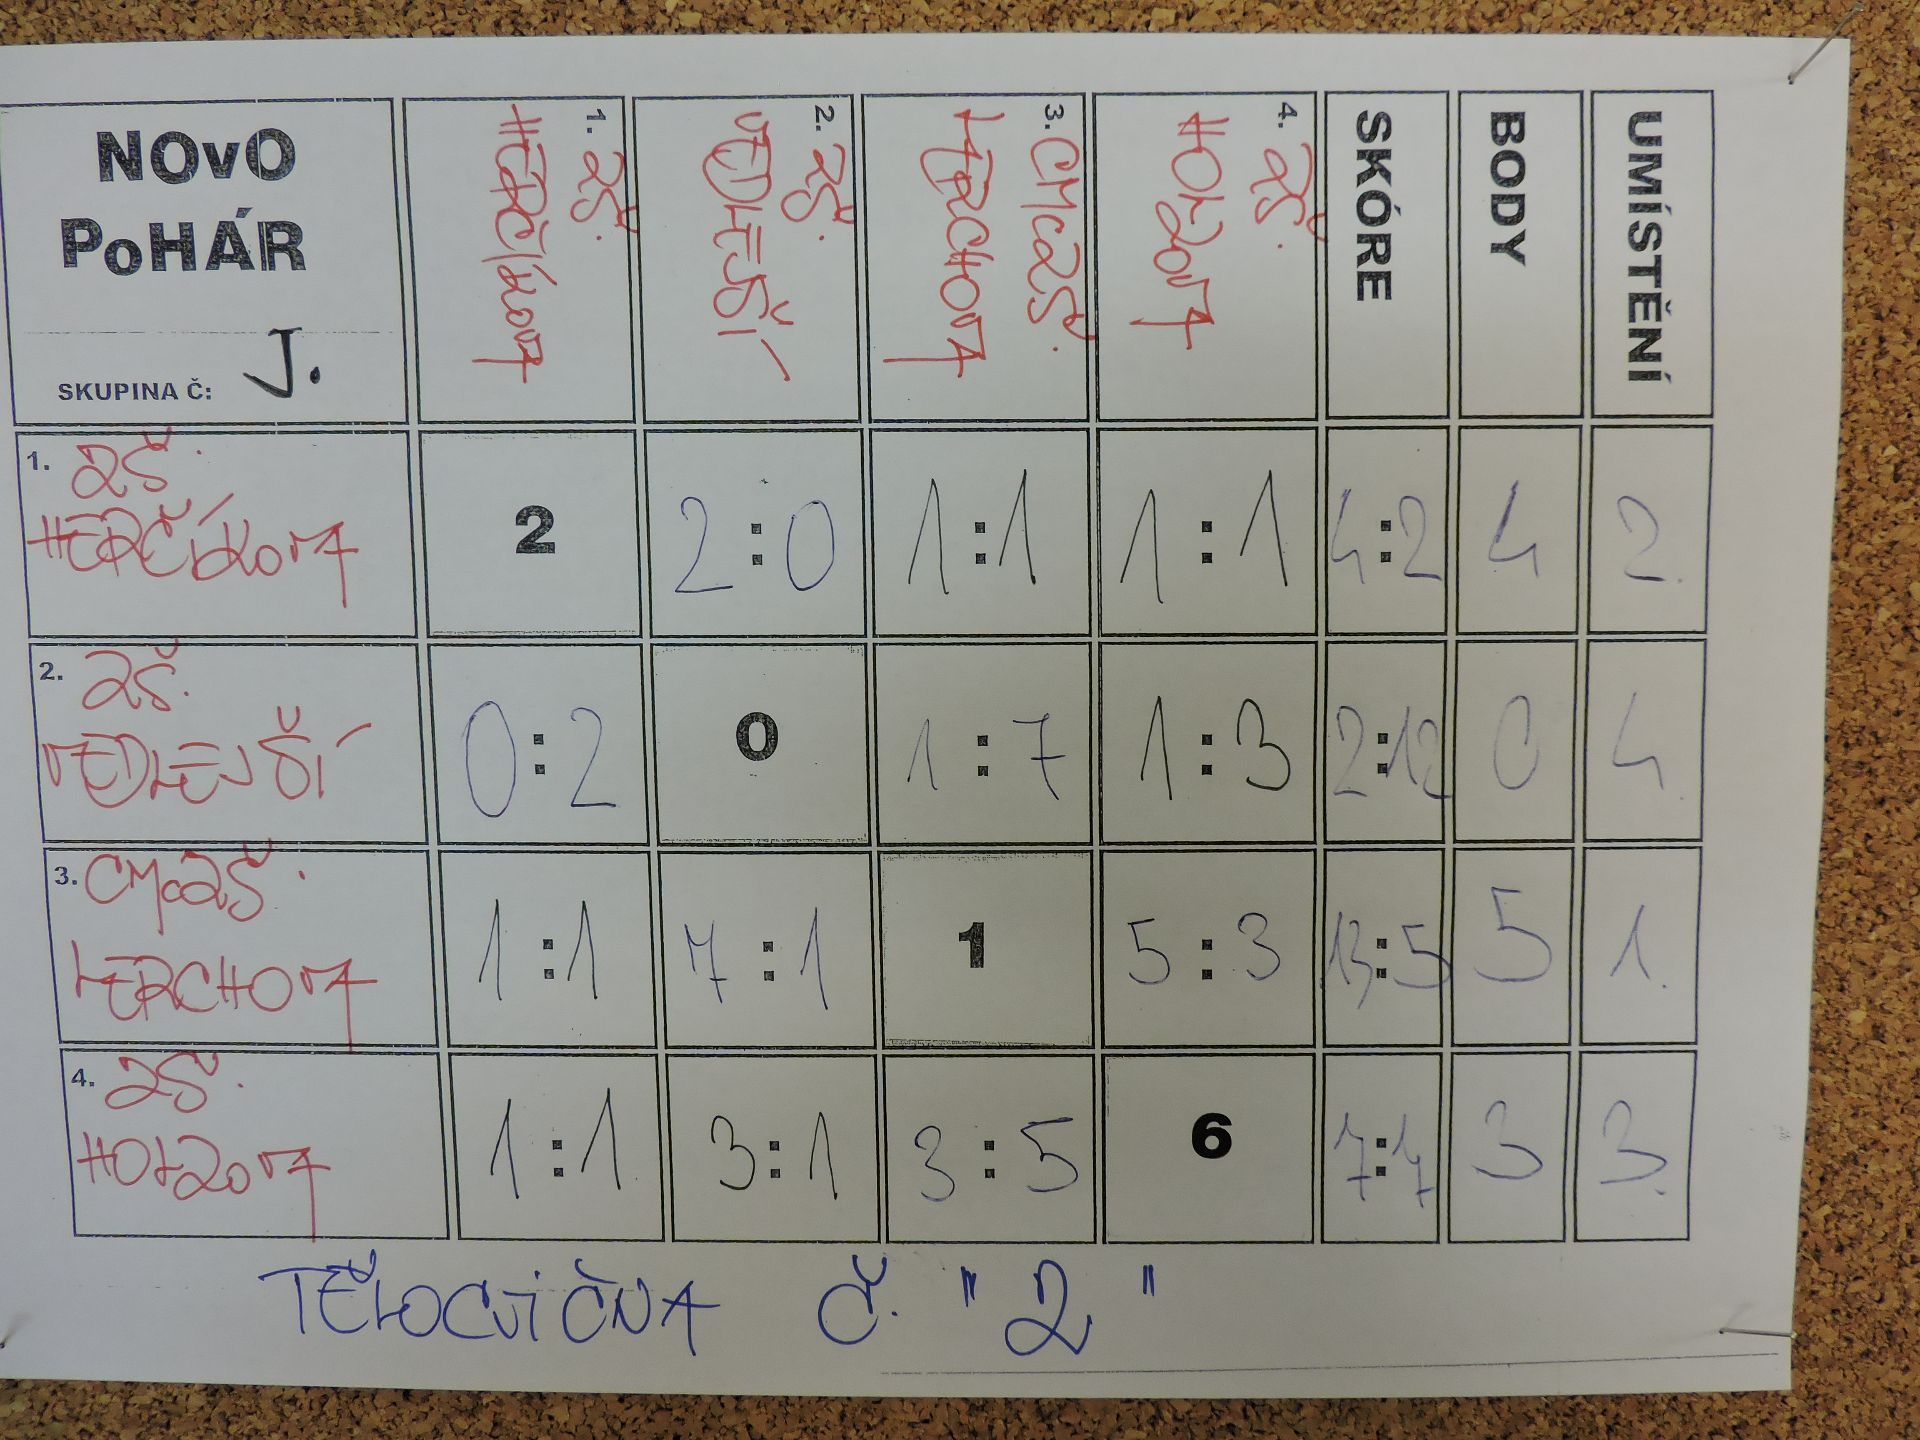 NOvO
PoHÁR
SKUPINA Č: J.
1. ZŠ.
HERČÍKOVA
2. ZŠ.
VEDLEJŠÍ
3. CMcZŠ.
LERCHOVA
4. ZŠ.
HOLZOVA
SKÓRE
BODY
UMÍSTĚNÍ
1. ZŠ.
HERČÍKOVA
2 2:0 1:1 1:1 4:2 4 2.
2. ZŠ.
VEDLEJŠÍ
0:2 0 1:7 1:3 2:12 0 4.
3. CMcZŠ.
LERCHOVA
1:1 7:1 1 5:3 13:5 5 1.
4. ZŠ.
HOLZOVA
1:1 3:1 3:5 6 7:7 3 3.
TĚLOCVIČNA Č. "2"